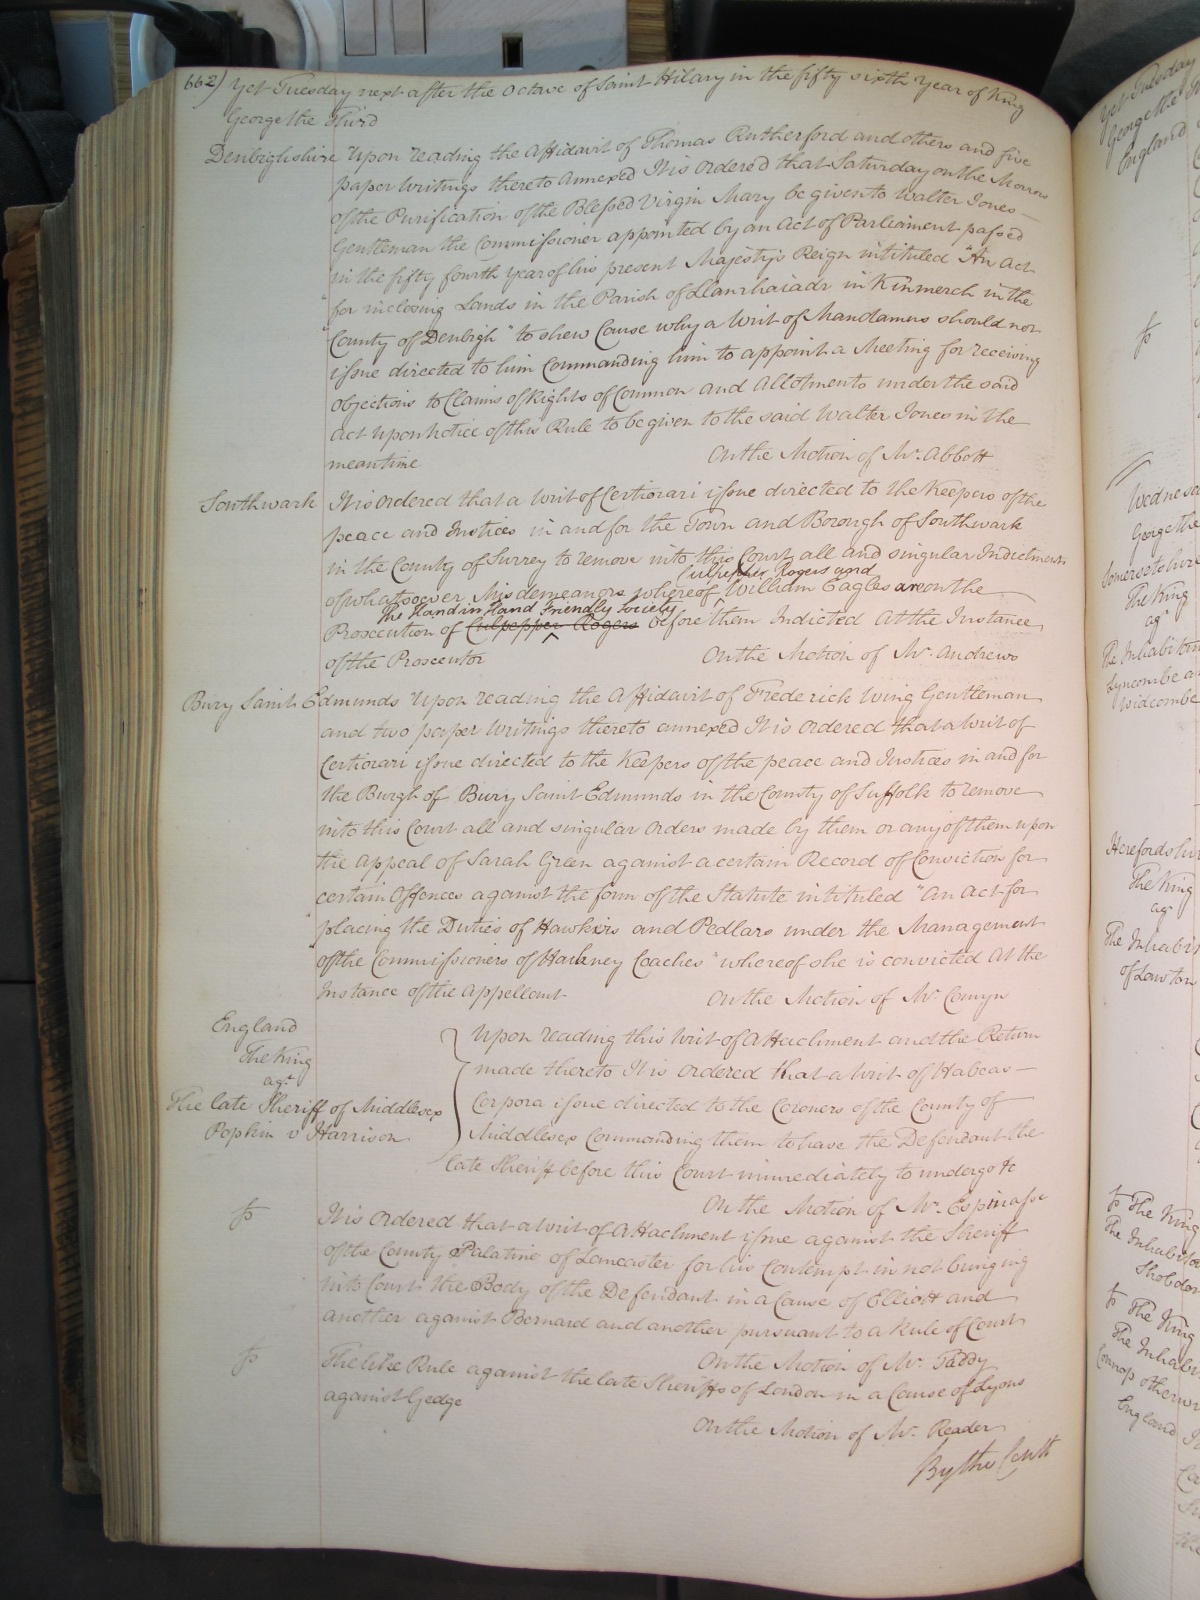 662) Yet Tuesday next after the Octave of Saint Hilary in the fifty sixth Year of King
George the Third
Denbighshire Upon reading the Affidavit of Thomas Rutherford and others and five
paper Writings thereto annexed It is Ordered that Saturday on the Morrow
of the Purification of the Blessed Virgin Mary be given to Walter Jones
Gentleman the Commissioner appointed by an Act of Parliament passed
in the fifty fourth Year of his present Majesty's Reign intituled "An Act
"for inclosing Lands in the Parish of Llanrhaiadr in Kinmerch in the
County of Denbigh" to shew Cause why a Writ of Mandamus should not
issue directed to him Commanding him to appoint a Meeting for receiving
Objections to Claims of Rights of Common and Allotments under the said
Act Upon Notice of this Rule to be given to the said Walter Jones in the
meantime On the Motion of Mr. Abbott
Southwark It is Ordered that a Writ of Certiorari issue directed to the Keepers of the
peace and Justices in and for the Town and Borough of Southwark
in the County of Surrey to remove into this Court all and singular Indictments
Culpepper Rogers and
of whatsoever Misdemeanors whereof William Eagles are on the
The Hand in Hand Friendly Society
Prosecution of Culpepper Rogers before them Indicted At the Instance
of the Prosecutor On the Motion of Mr. Andrews
Bury Saint Edmunds Upon reading the Affidavit of Frederick Wing Gentleman
and two paper Writings thereto annexed It is Ordered that a Writ of
Certiorari issue directed to the Keepers of the peace and Justices in and for
the Burgh of Bury Saint Edmunds in the County of Suffolk to remove
into this Court all and singular Orders made by them or any of them upon
the Appeal of Sarah Green against a certain Record of Conviction for
certain Offences against the form of the Statute intituled "An Act for
"placing the Duties of Hawkers and Pedlars under the Management
"of the Commissioners of Hackney Coaches" whereof she is convicted At the
Instance of the Appellant On the Motion of Mr. Comyn
England
The King
agt.
The late Sheriff of Middlesex
Popkin v Harrison
Upon reading this Writ of Attachment and the Return
made thereto It is Ordered that a Writ of Habeas
Corpora issue directed to the Coroners of the County of
Middlesex Commanding them to have the Defendant the
late Sheriff before this Court immediately to undergo &c
On the Motion of Mr. Espinasse
It is Ordered that a Writ of Attachment issue against the Sheriff
of the County Palatine of Lancaster for his Contempt in not bringing
into Court the Body of the Defendant in a Cause of Elliott and
another against Bernard and another pursuant to a Rule of Court
On the Motion of Mr. Taddy
The like Rule against the late Sheriffs of London in a Cause of Lyons
against Gedge
On the Motion of Mr. Reader
By the Court
Yet Tuesday
George the
England
Wednesd
George the
Somersetshire
The King
agt
The Inhabitan
Lyncombe a
Widcombe
Herefordshir
The King
agt
The Inhabit
of Lawton
The King
The Inhabita
Shobdon
The King
The Inhabi
otherw
England